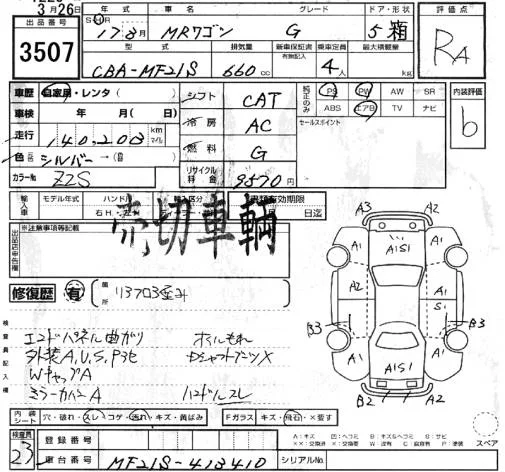 3月26日
出品番号
3507
年式 車名 グレード ドア・形状
17年3月 MRワゴン G 5 箱
型式 排気量 新車保証書 乗車定員 最大積載量
有無記入
CBA-MF21S 660cc 4人 kg
評価点
RA
車歴 自家用・レンタ( )
シフト CAT
純正のみ PS PW AW SR
ABS エアB TV ナビ
内装評価
b
車検 年 月( 日)
冷房 AC
セールスポイント
走行 140,203 km マイル
燃料 G
色 シルバー→
リサイクル料金 9570円
カラーNo Z2S
輸入車 モデル年式 ハンドル 輸入区分 書類有効期限
右H・左H ディーラー・ 日迄
売切車輌
出品店申告欄
※注意事項等記載
修復歴 有 箇所
検査員記入欄
エンドパネル曲がり オイルもれ
外装A,U,S,P3セ
WキャップA
ミラーカバーA ハンドルスレ
A3 A2
A1 A1S1 A1
A2 A1
S1
B3 B3
A1 A1S1 A1
A1S1
B2 A2
内装シート 穴・破れ・スレ・コゲ・汚れ・キズ・黄ばみ Fガラス キズ・飛石・×要す
A:キズ 凹:ヘコミ B:キズ&ヘコミ S:サビ
××:交換済 ×:交換要 W:波有 C:腐食有 P:塗装
スペア
検査員
23
登録番号
車台番号 MF21S-413410 シリアルNo.